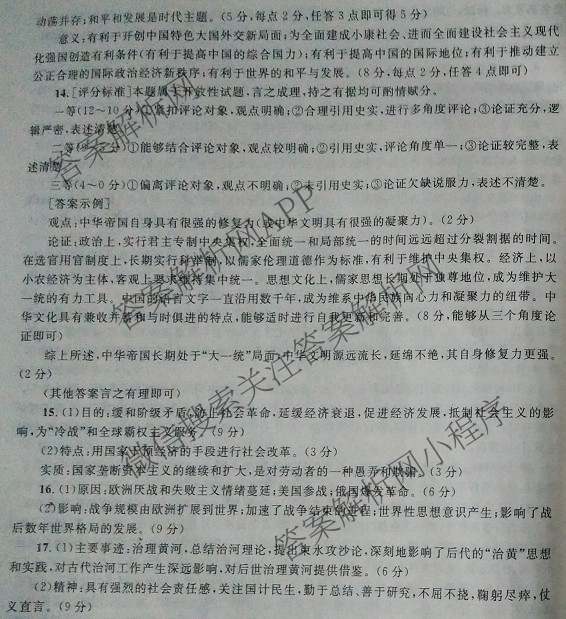 动荡并存;和平和发展是时代主题。(5分,每点2分,任答3点即可得5分)
意义:有利于开创中国特色大国外交新局面;为全面建成小康社会、进而全面建设社会主义现代
化强国创造有利条件(有利于提高中国的综合国力);有利于提高中国的国际地位;有利于推动建立
公正合理的国际政治经济新秩序;有利于世界的和平与发展。(8分,每点2分,任答4点即可)
14.[评分标准]本题属于开放性试题,言之成理,持之有据均可酌情赋分。
一等(12~10分)①紧扣评论对象,观点明确;②合理引用史实,进行多角度评论;③论证充分,逻
辑严密,表述清楚
二等 ①能够结合评论对象,观点较明确;②引用史实,评论角度单一;③论证较完整,表
述清楚
三等(4~0分)①偏离评论对象,观点不明确;②未引用史实;③论证欠缺说服力,表述不清楚。
[答案示例]
观点:中华帝国自身具有很强的修复力(或中华文明具有很强的凝聚力)。(2分)
论证:政治上,实行君主专制中央集权,全面统一和局部统一的时间远远超过分裂割据的时间。
在选官用官制度上,长期实行科举制,以儒家伦理道德作为标准,有利于维护中央集权。经济上,以
小农经济为主体,客观上要求维持集中统一。思想文化上,儒家思想长期处于独尊地位,成为维护大
一统的有力工具。中国的语言文字一直沿用数千年,成为维系中华民族向心力和凝聚力的纽带。中
华文化具有兼收并蓄和与时俱进的特点,能够适时进行自我更新和完善。(8分,能够从三个角度论
证即可)
综上所述,中华帝国长期处于“大一统”局面,中华文明源远流长,延绵不绝,其自身修复力更强。
(2分)
(其他答案言之有理即可)
15.(1)目的:缓和阶级矛盾,防止社会革命,延缓经济衰退,促进经济发展,抵制社会主义的影
响,为“冷战”和全球霸权主义服务。(9分)
(2)特点:用国家干预经济的手段进行社会改革。(3分)
实质:国家垄断资本主义的继续和扩大,是对劳动者的一种愚弄和欺骗。(3分)
16.(1)原因:欧洲厌战和失败主义情绪蔓延;美国参战;俄国爆发革命。(6分)
(2)影响:战争规模由欧洲扩展到世界;加速了战争结束的进程;世界性思想意识产生;影响了战
后数年世界格局的发展。(9分)
17.(1)主要事迹:治理黄河,总结治河理论,提出束水攻沙论,深刻地影响了后代的“治黄”思想
和实践,对古代治河工作产生深远影响,对后世治理黄河提供借鉴。(6分)
(2)精神:具有强烈的社会责任感,关注国计民生,勤于总结、善于研究,不屈不挠,鞠躬尽瘁,仗
义直言。(9分)
答案解析网APP
微信搜索关注答案解析网
答案解析网小程序